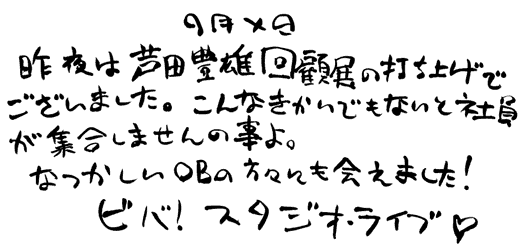 9月×日
昨夜は芦田豊雄回顧展の打ち上げで
ございました。こんなきかいでもないと社員
が集合しませんの事よ。
なつかしいOBの方々にも会えました!
ビバ!スタジオ・ライブ♡